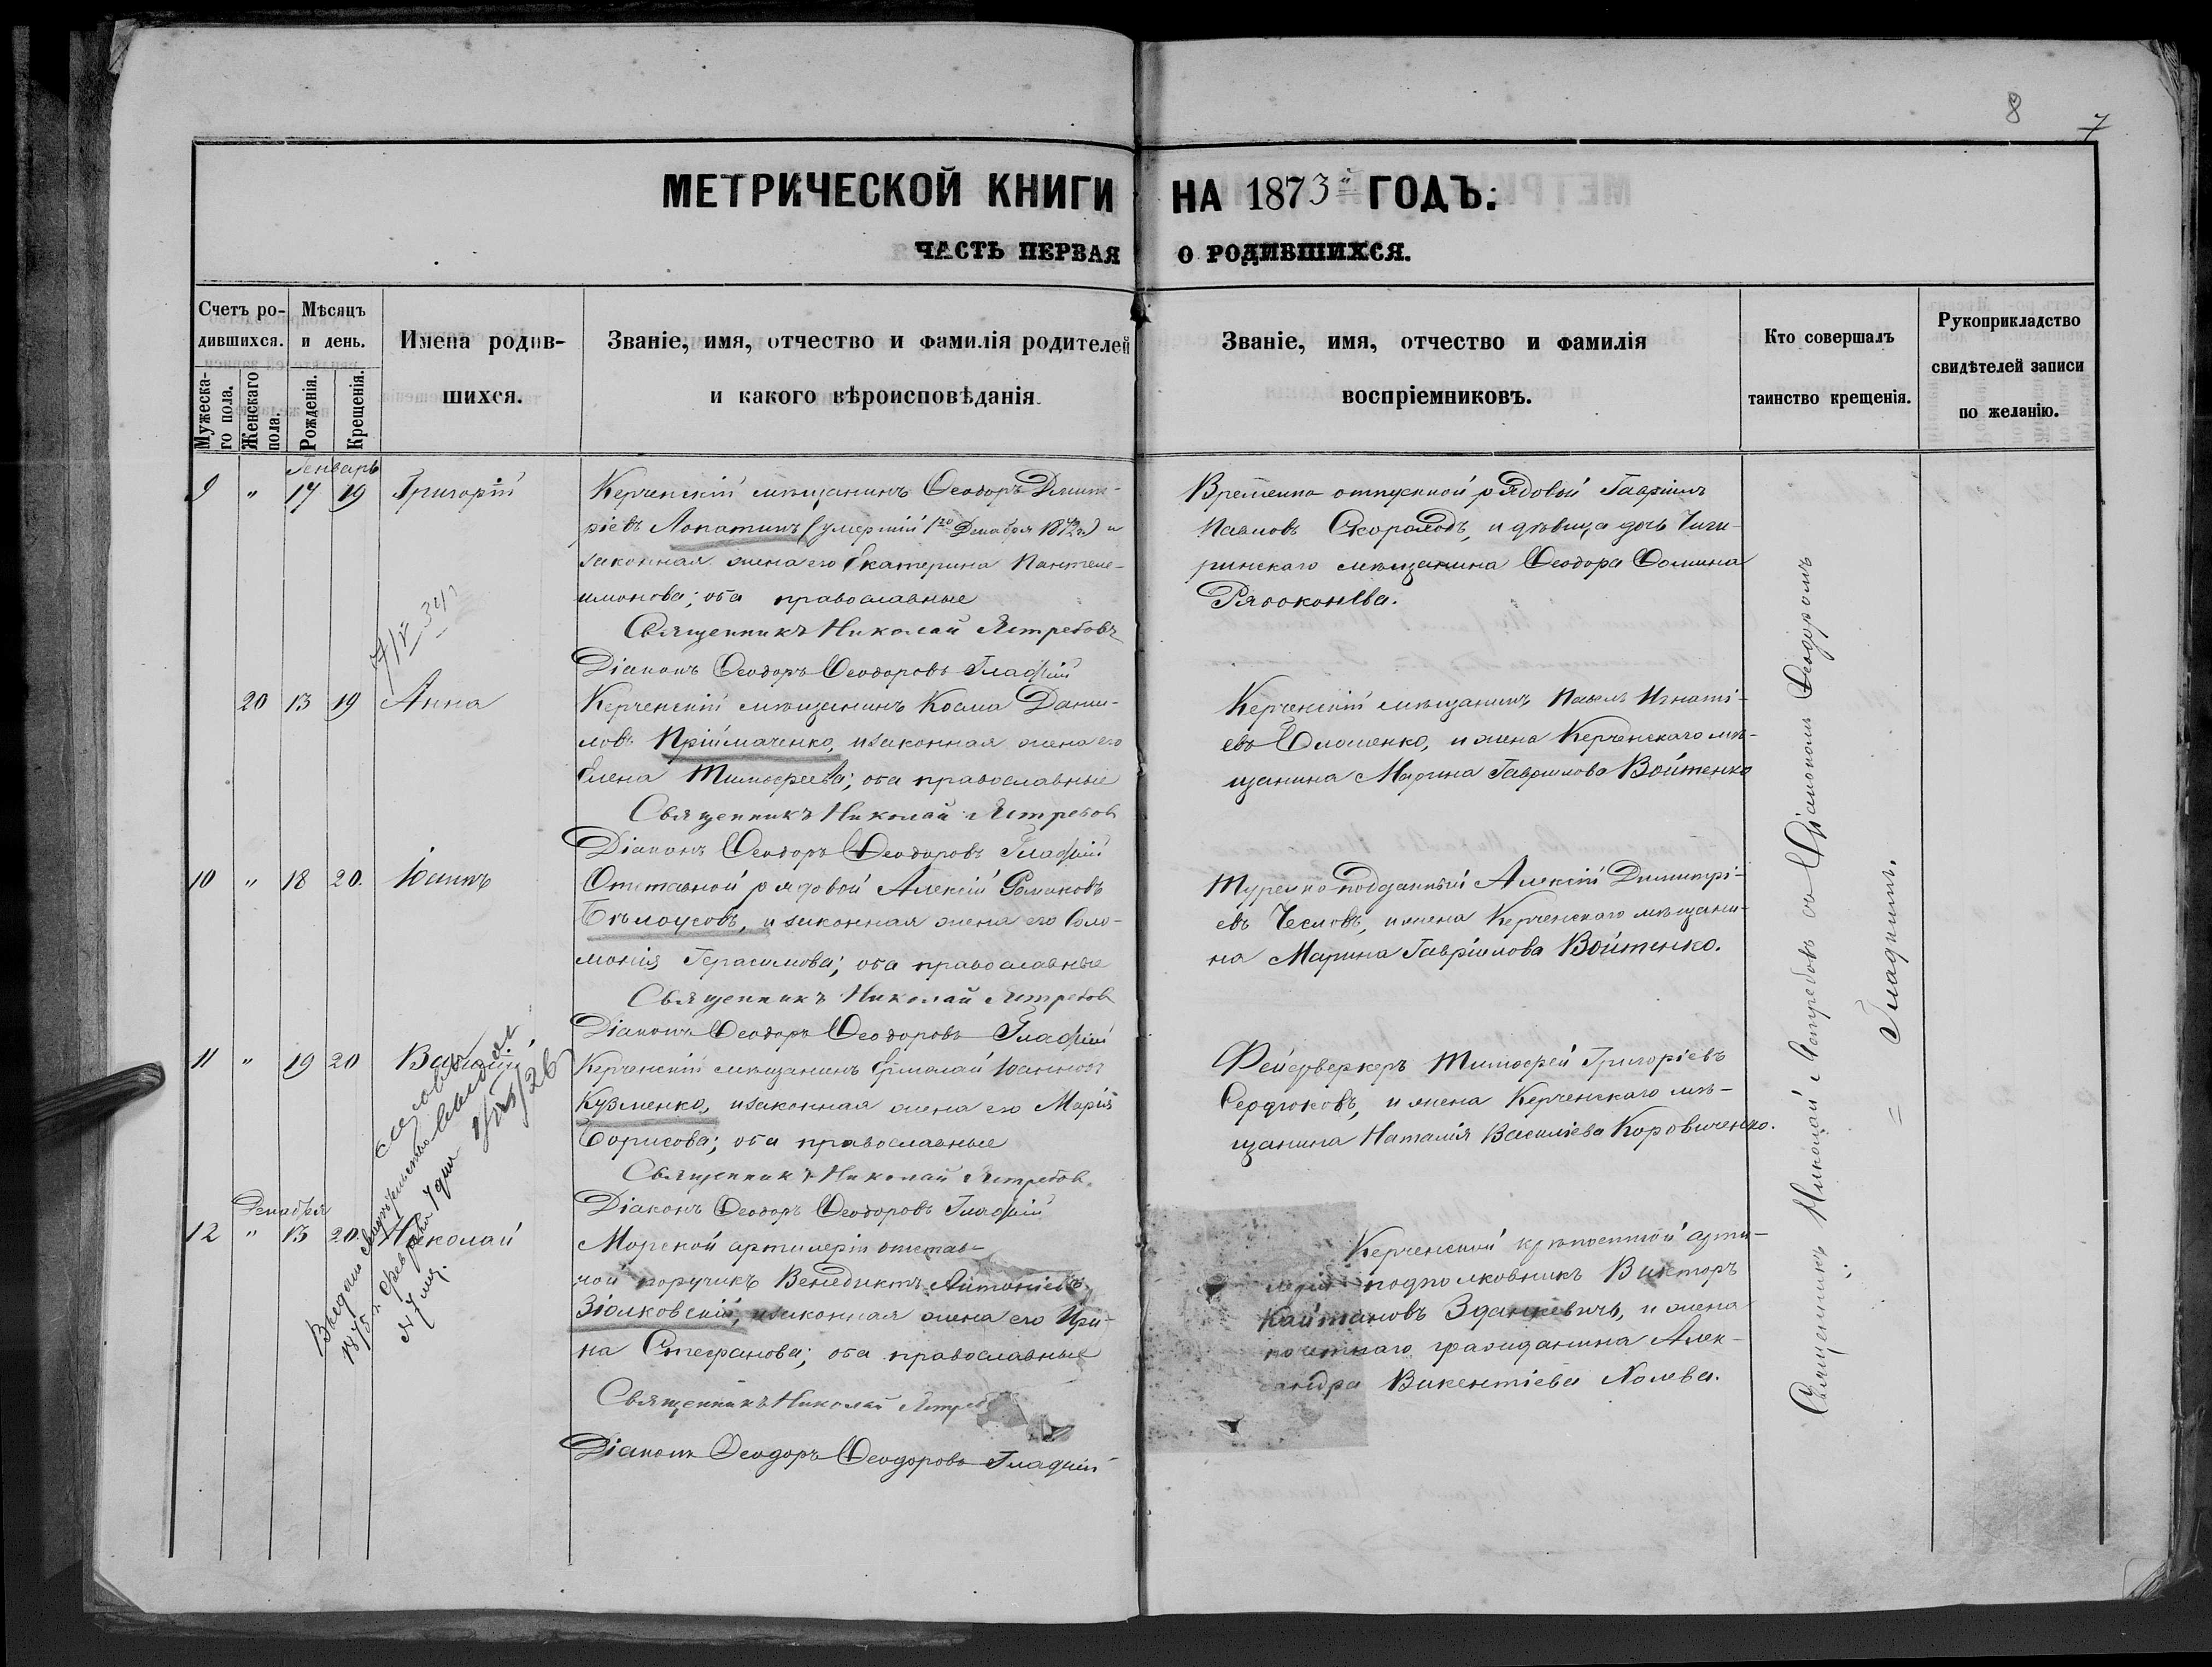 8
7
МЕТРИЧЕСКОЙ КНИГИ НА 1873й ГОДЪ:
ЧАСТЬ ПЕРВАЯ О РОДИВШИХСЯ.
Счетъ ро-
дившихся.
Мужеска-
го пола.
Женскаго
пола.
Мѣсяцъ
и день.
Рожденія.
Крещенія.
Имена родив-
шихся.
Званіе, имя, отчество и фамилія родителей
и какого вѣроисповѣданія.
Званіе, имя, отчество и фамилія
воспріемниковъ.
Кто совершалъ
таинство крещенія.
Рукоприкладство
свидѣтелей записи
по желанію.
Генварь
9 " 17 19 Григорій
Керченскій мѣщанинъ Ѳеодоръ Димит-
ріевъ Лопатинъ (умершій 1го Декабря 1872г) и
законная жена его Екатерина Пантеле-
имонова; оба православные
Священникъ Николай Ястребовъ
Діаконъ Ѳеодоръ Ѳеодоровъ Гладкій
Временно отпускной рядовой Гавріилъ
Павловъ Скороходъ, и дѣвица дочь Чиги-
ринскаго мѣщанина Ѳеодора Ѳомина
Рябоконева.
20 13 19 Анна
Керченскій мѣщанинъ Косма Дани-
ловъ Пріймаченко, и законная жена его
Елена Тимоѳеева; оба православные
Священникъ Николай Ястребов
Діаконъ Ѳеодоръ Ѳеодоровъ Гладкій
Керченскій мѣщанинъ Павелъ Игнаті-
евъ, и жена Керченскаго мѣ-
щанина Марина Гавріилова Войтенко
10 " 18 20. Іоаннъ
Отставной рядовой Алексій Романовъ
Бѣлоусовъ, и законная жена его Соло-
монія Герасимова; оба православные
Священникъ Николай Ястребов
Діаконъ Ѳеодоръ Ѳеодоровъ Гладкій
Турецко-подданный Алексій Димитрі-
евъ Чесловъ, и жена Керченскаго мѣщани-
на Марина Гавріилова Войтенко.
11 " 19 20
Керченскій мѣщанинъ Ермолай Іоанновъ
Кузменко, и законная жена его Марія
Борисова; оба православные
Священникъ Николай Ястребов.
Діаконъ Ѳеодоръ Ѳеодоровъ Гладкій
Фейерверкеръ Тимоѳей Григоріевъ
Сердюковъ, и жена Керченскаго мѣ-
щанина Наталія Василіева Коровиченко.
Декабря
12 " 13 20. Николай
Морской артилеріи отстав-
ной поручикъ Венедиктъ Антоніевъ
Зіолковскій, и законная жена его Ири-
на Стефанова; оба православные
Священникъ Николай
Діаконъ Ѳеодоръ Ѳеодоровъ Гладкій
Керченской крѣпостной арти-
леріи подполковникъ Викторъ
Кайтановъ Зданкевичъ, и жена
почетнаго гражданина Алек-
сандра Викентіева Холева.
Священникъ Николай Ястребовъ съ Діакономъ Ѳеодоромъ
Гладкимъ.